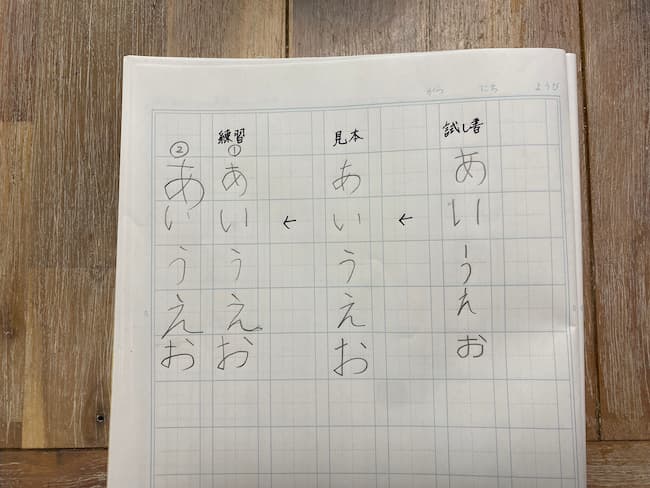 がつ にち ようび
試し書
あいうえお
←
見本
あいうえお
←
練習
①
あいうえお
②
あいうえお